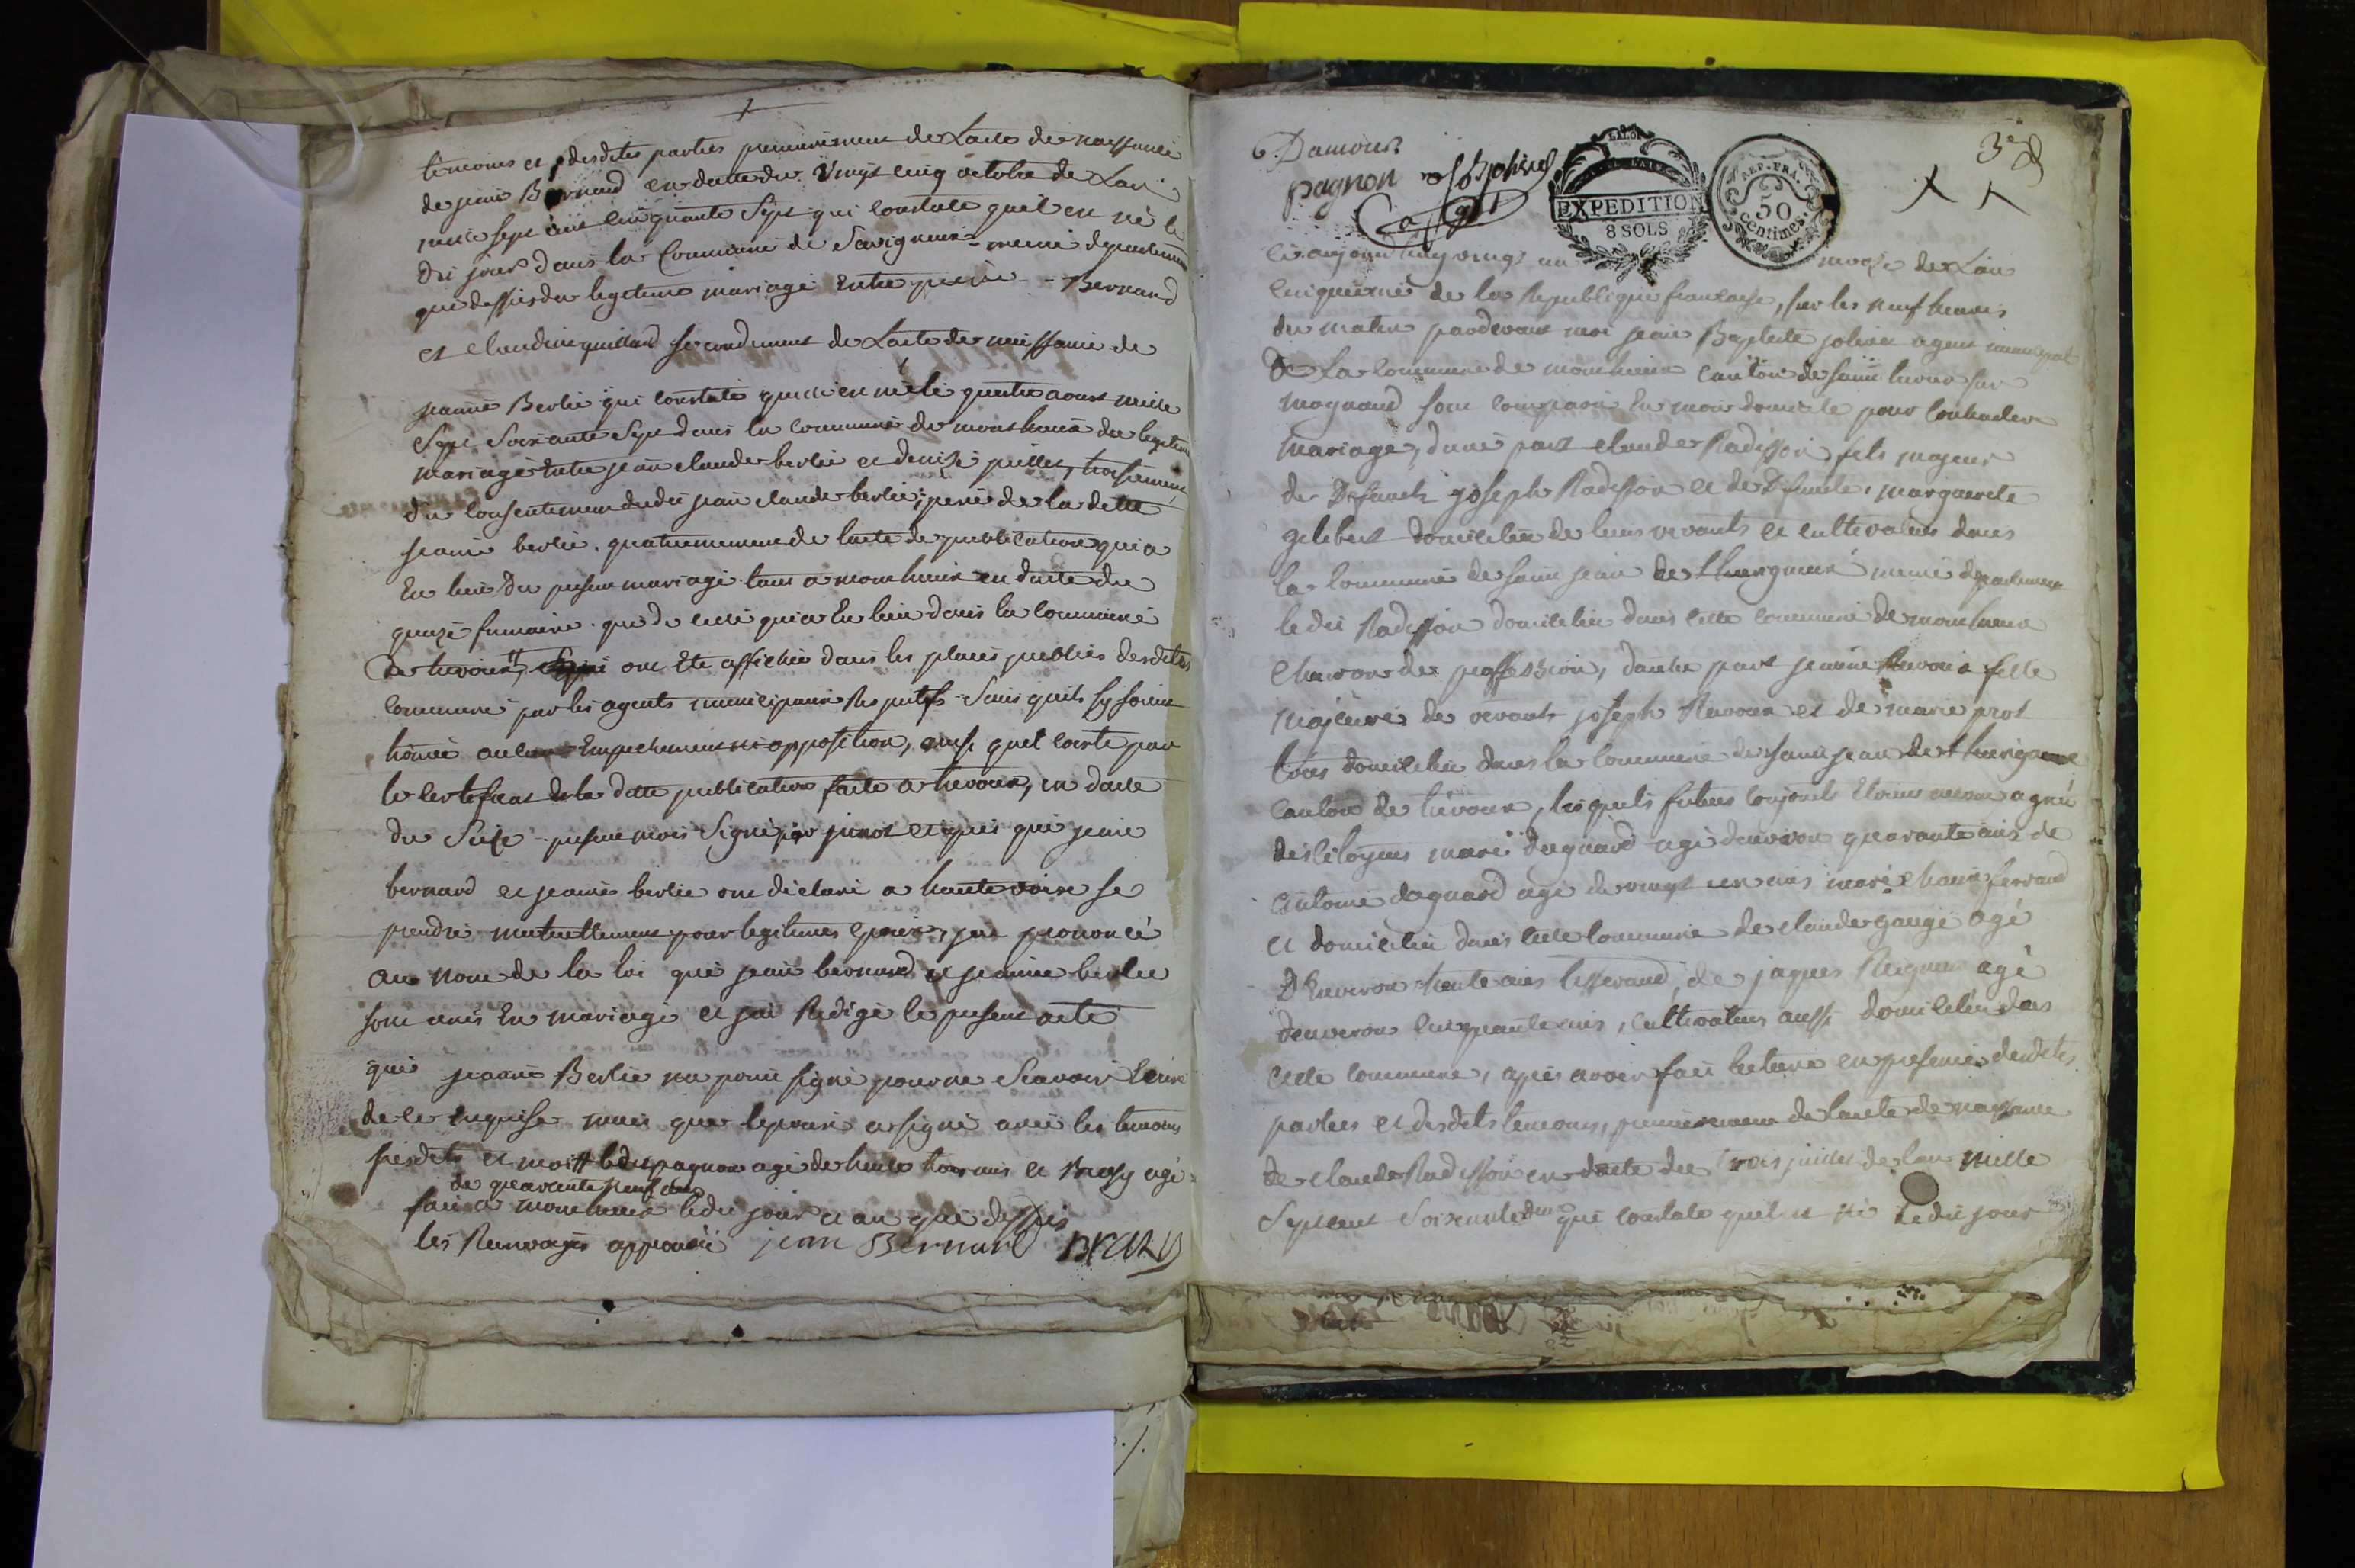 temoins et desdites parties premierement de Lacte de naissance
de jean Bernard en datte du vingt cinq octobre de Lan
mille sept cent cinquante Sept qui constate quil est né le
dit jour dans la Commune de Savigneux meme departement
que dessus du legitime mariage Entre pierre Bernard
et Claudine guillard secondement de Lacte de naissance de
jeanne Berlie qui constate quelle est née le quatre aoust mille
Sept Soixante Sept dans la commune de monthieux du legitime
mariage Entre jean claude berlie et denise pillet, troisiemement
du consentement dudit jean claude berlie pere de la ditte
jeanne berlie. quatriemement de lacte de publication qui a
Eu lieu du present mariage tant a monthieux en datte du
quinze frimaire que de celle qui a Eu lieu dans la commune
de trevoux, ont Eté affichée dans les places publics desdites
commune par les agents municipaux Respectifs Sans quils sy soient
trouvé aucun Empechement ni opposition, ainsi quil conste par
le certificat de la ditte publication faite a trevoux, en datte
du Seize present mois Signé par et apres que jean
bernard et jeanne berlie ont déclaré a haute voix se
prendre mutuellement pour legitimes Epoux, jai prononcé
au nom de la loi que jean bernard et jeanne berlie
sont unis En mariage et jai Redigé le present acte
que jeanne Berlie na point signé pour ne Scavoir Ecrire
de ce enquise mais que lepoux a signé avec les temoins
susdits et moi ledit pagnon agé de trente trois ans et Brazy agé
de quarante neuf ans
fait a monthieux ledit jour et an que dessus
les Renvoyes approuvé jean Bernard BRAZY
Damour
pagnon Jolivet
3e
EXPEDITION
8 SOLS
REP. FRA.
50
Centimes.
Cejourdhuy vingt un nivose de Lan
Cinquieme de la Republique francaise, sur les neuf heures
du matin pardevant moi jean Baptiste jolivet agent municipal
De La commune de monthieux canton de saint trivier sur
mognand sont comparu En mon domicile pour contracter
mariage, dune part claude Radisson fils majeur
de Defunt joseph Radisson et de Defunte marguerite
gilibert domiciliés de leurs vivants et cultivateurs dans
la commune de saint jean de thurigneux meme departement
ledit Radisson domicilié dans cette commune de monthieux
charon de proffession, dautre part jeanne fille
majeure de vivants joseph et de marie prost
tous domicilié dans la commune de saint jean de thurigneux
canton de trevoux, lesquels futurs conjoints Etoient
des citoyens marie dagnard agé denviron quarante ans de
antoine dagnard agé de vingt ans ferrand
et domicilié dans cette commune de claude gauge agé
D'Environ trente ans tisserand, de jaques agé
denviron cinquante ans, cultivateur aussi domicilié dans
cette commune, apres avoir fait lecture en presence desdites
parties et desdits temoins, premierement de lacte de naissance
de claude Radisson en datte du trois juillet de lan mille
Septcent Soixante deux qui constate quil est né ledit jour